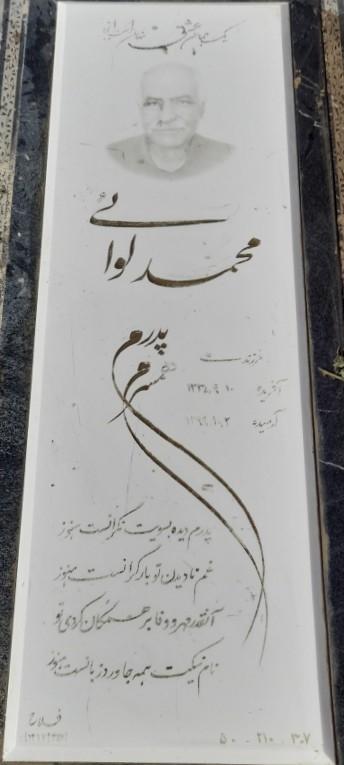 محمد لوائی
پدرم
همسرم
فرزند
آفریده ۱۳۳۵.۹.۱۰
آرمیده ۱۳۹۹.۱۰.۲
پدرم دیده بسویت نگرانست هنوز
غم نادیدن تو بار گرانست هنوز
آنقدر مهر و وفا بر همگان کردی تو
نام نیکت همه جا ورد زبانست هنوز
فلاح
۵۰ - ۲۱۰ - ۳۰۷